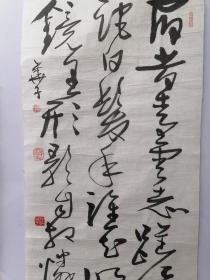 宿昔青云志蹉
跎白发年谁知明
镜里形影自相怜